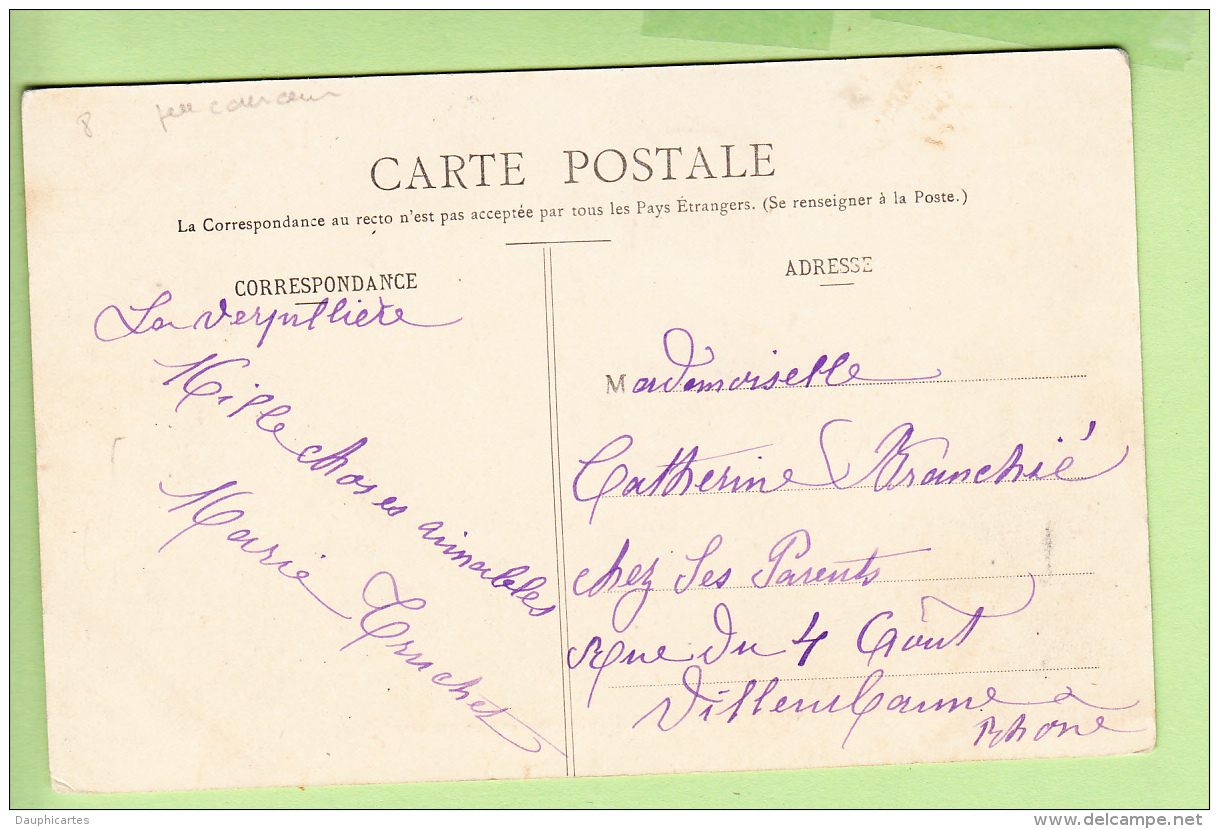 8
CARTE POSTALE
La Correspondance au recto n'est pas acceptée par tous les Pays Étrangers. (Se renseigner à la Poste.)
CORRESPONDANCE
La Verpillière
Mille choses aimables
Marie Truchet
ADRESSE
Mademoiselle
Catherine Branchié
chez Ses Parents
Rue du 4 Août
Villeurbanne
Rhone
Dauphicartes
www.delcampe.net